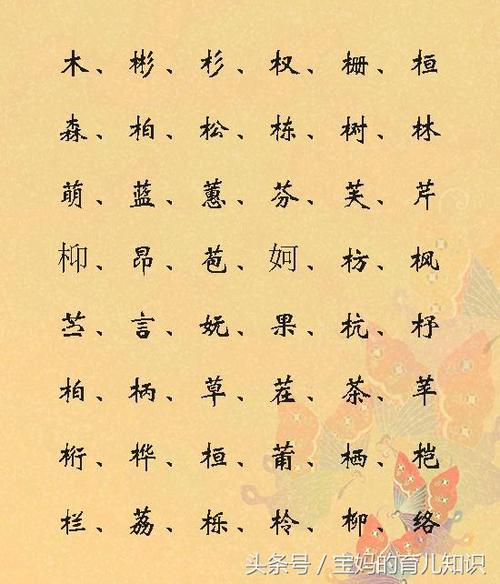 木、彬、杉、杈、栅、桓
森、柏、松、栋、树、林
萌、蓝、蕙、芬、芙、芹
枊、昂、苞、妸、枋、枫
苎、言、妩、果、杭、杼
柏、柄、草、茬、茶、苹
桁、桦、桓、莆、栖、桤
栏、荔、栎、柃、柳、络
头条号／宝妈的育儿知识